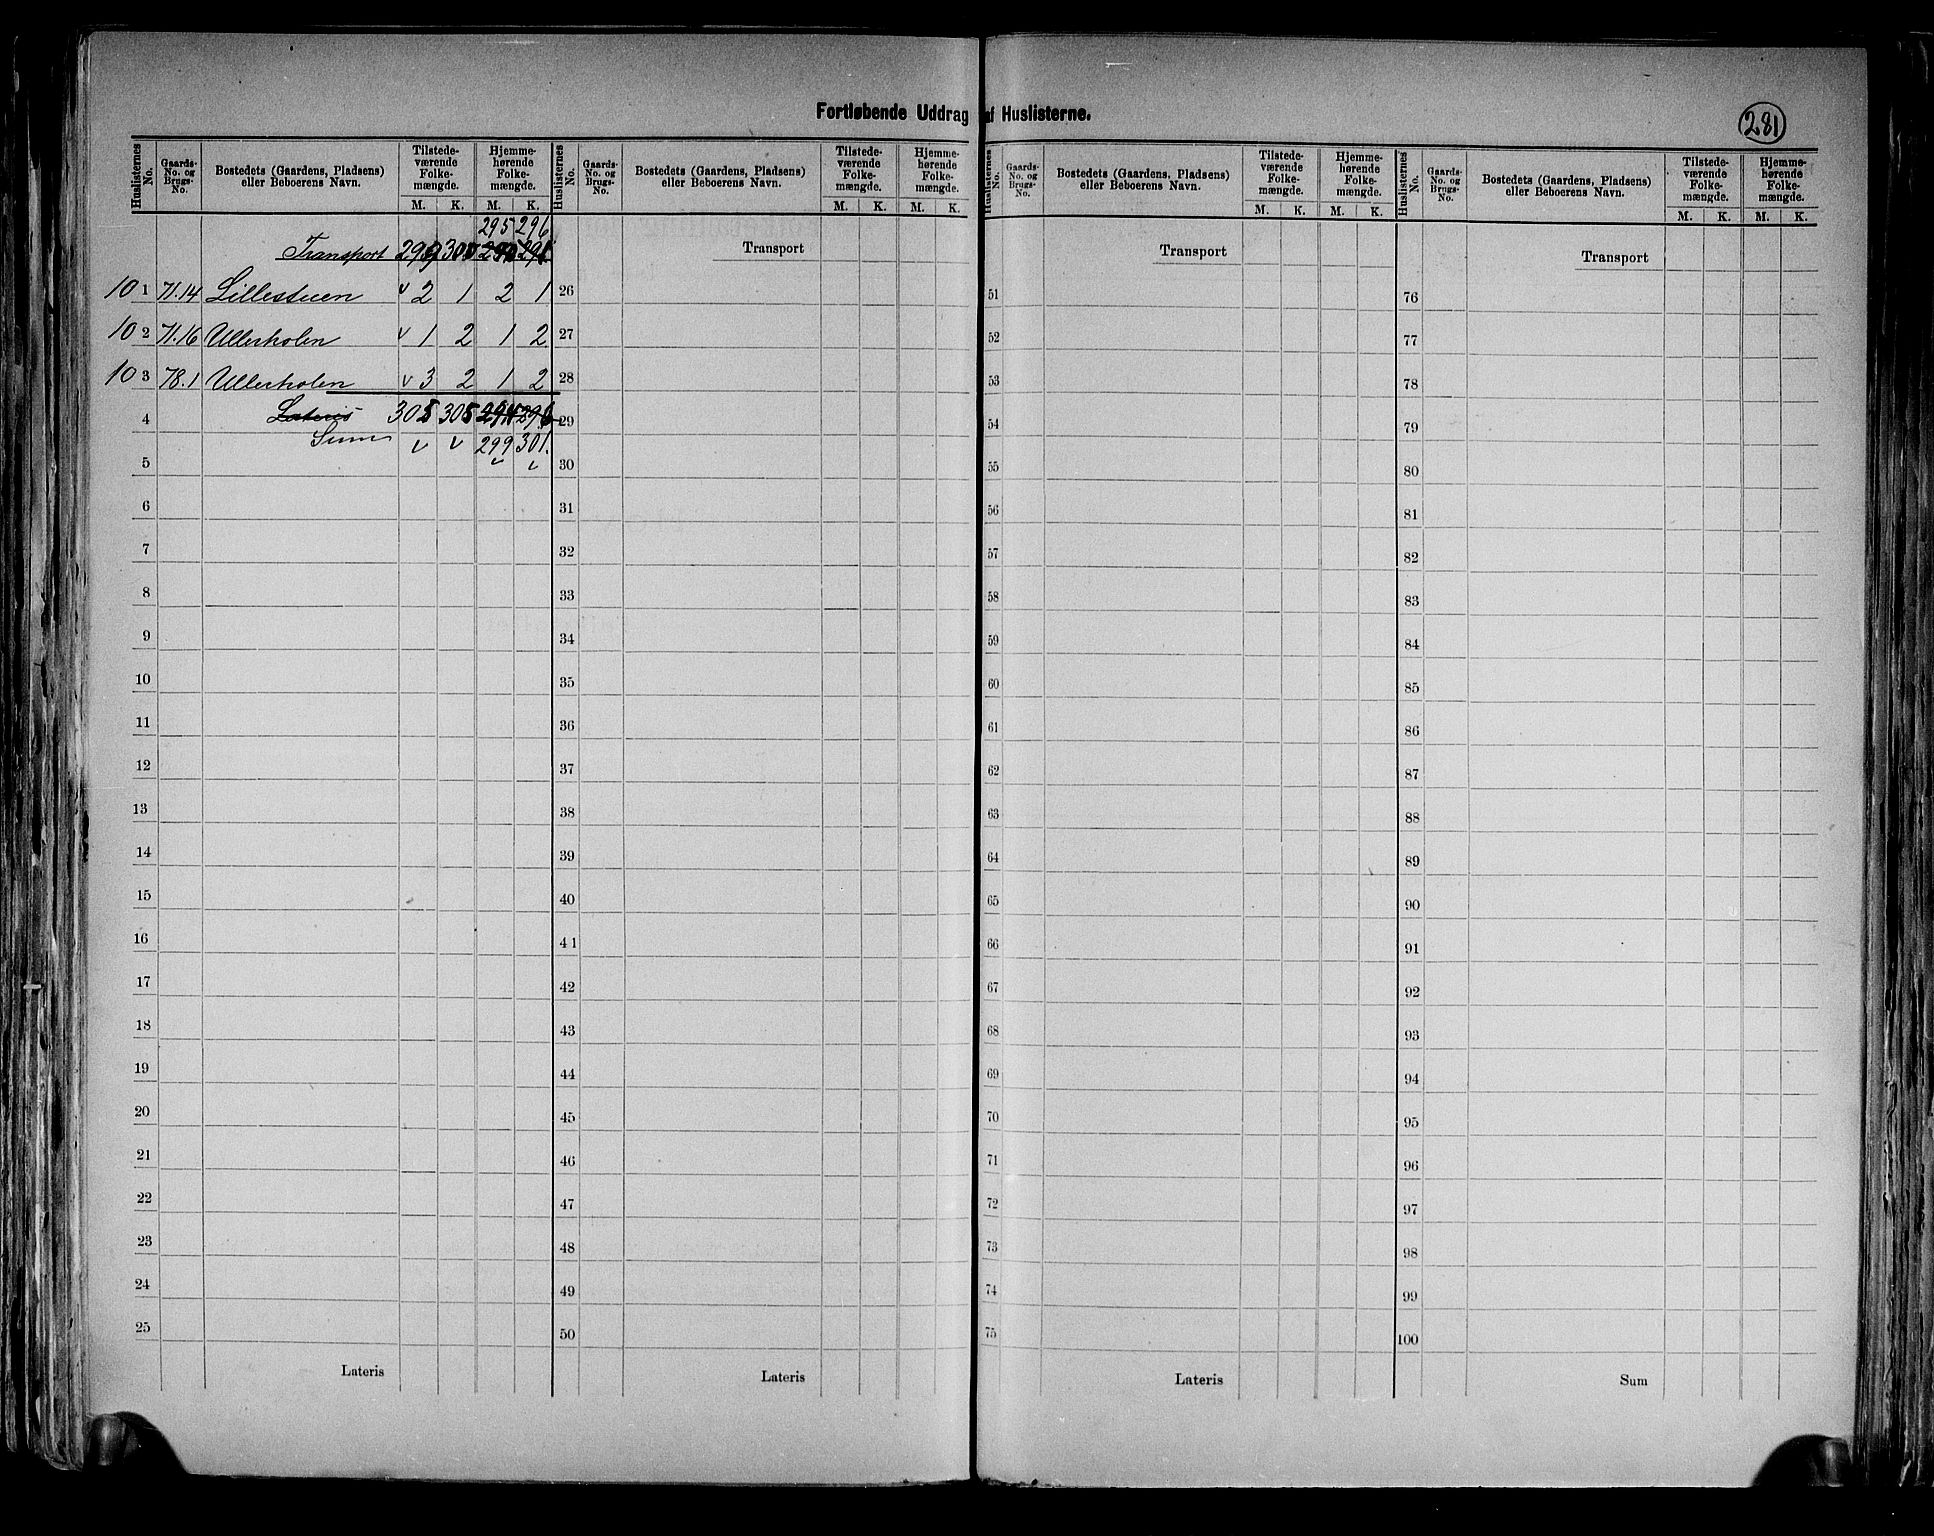 Fortløbende Uddrag af Huslisterne.
281
Huslisternes No. Gaards-No. og Brugs-No. Bostedets (Gaardens, Pladsens) eller Beboerens Navn. Tilstede-værende Folke-mængde. Hjemme-hørende Folke-mængde.
M. K. M. K.
295 296
Transport 299 300
101 71.14 Lillestuen v 2 1 2 1
102 71.16 Ullerholen v 1 2 1 2
103 78.1 Ullerholen v 3 2 1 2
4 Lateris 305 305 294 296
Sum v v 299 301.
5 v v
6
7
8
9
10
11
12
13
14
15
16
17
18
19
20
21
22
23
24
25
Lateris
Huslisternes No. Gaards-No. og Brugs-No. Bostedets (Gaardens, Pladsens) eller Beboerens Navn. Tilstede-værende Folke-mængde. Hjemme-hørende Folke-mængde.
M. K. M. K.
Transport
26
27
28
29
30
31
32
33
34
35
36
37
38
39
40
41
42
43
44
45
46
47
48
49
50
Lateris
Huslisternes No. Gaards-No. og Brugs-No. Bostedets (Gaardens, Pladsens) eller Beboerens Navn. Tilstede-værende Folke-mængde. Hjemme-hørende Folke-mængde.
M. K. M. K.
Transport
51
52
53
54
55
56
57
58
59
60
61
62
63
64
65
66
67
68
69
70
71
72
73
74
75
Lateris
Huslisternes No. Gaards-No. og Brugs-No. Bostedets (Gaardens, Pladsens) eller Beboerens Navn. Tilstede-værende Folke-mængde. Hjemme-hørende Folke-mængde.
M. K. M. K.
Transport
76
77
78
79
80
81
82
83
84
85
86
87
88
89
90
91
92
93
94
95
96
97
98
99
100
Sum